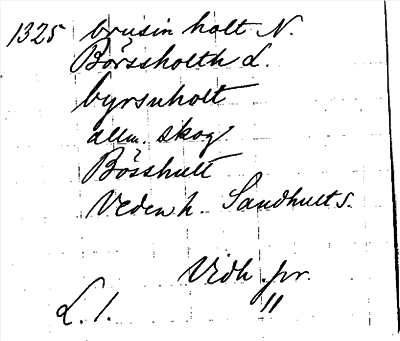 1325 brusin holt N.
Börssholth L.
byrsnholt
allm. skog
Bösshult
Veden h. Sandhults s.
Vidh. pr.
L. 1. "